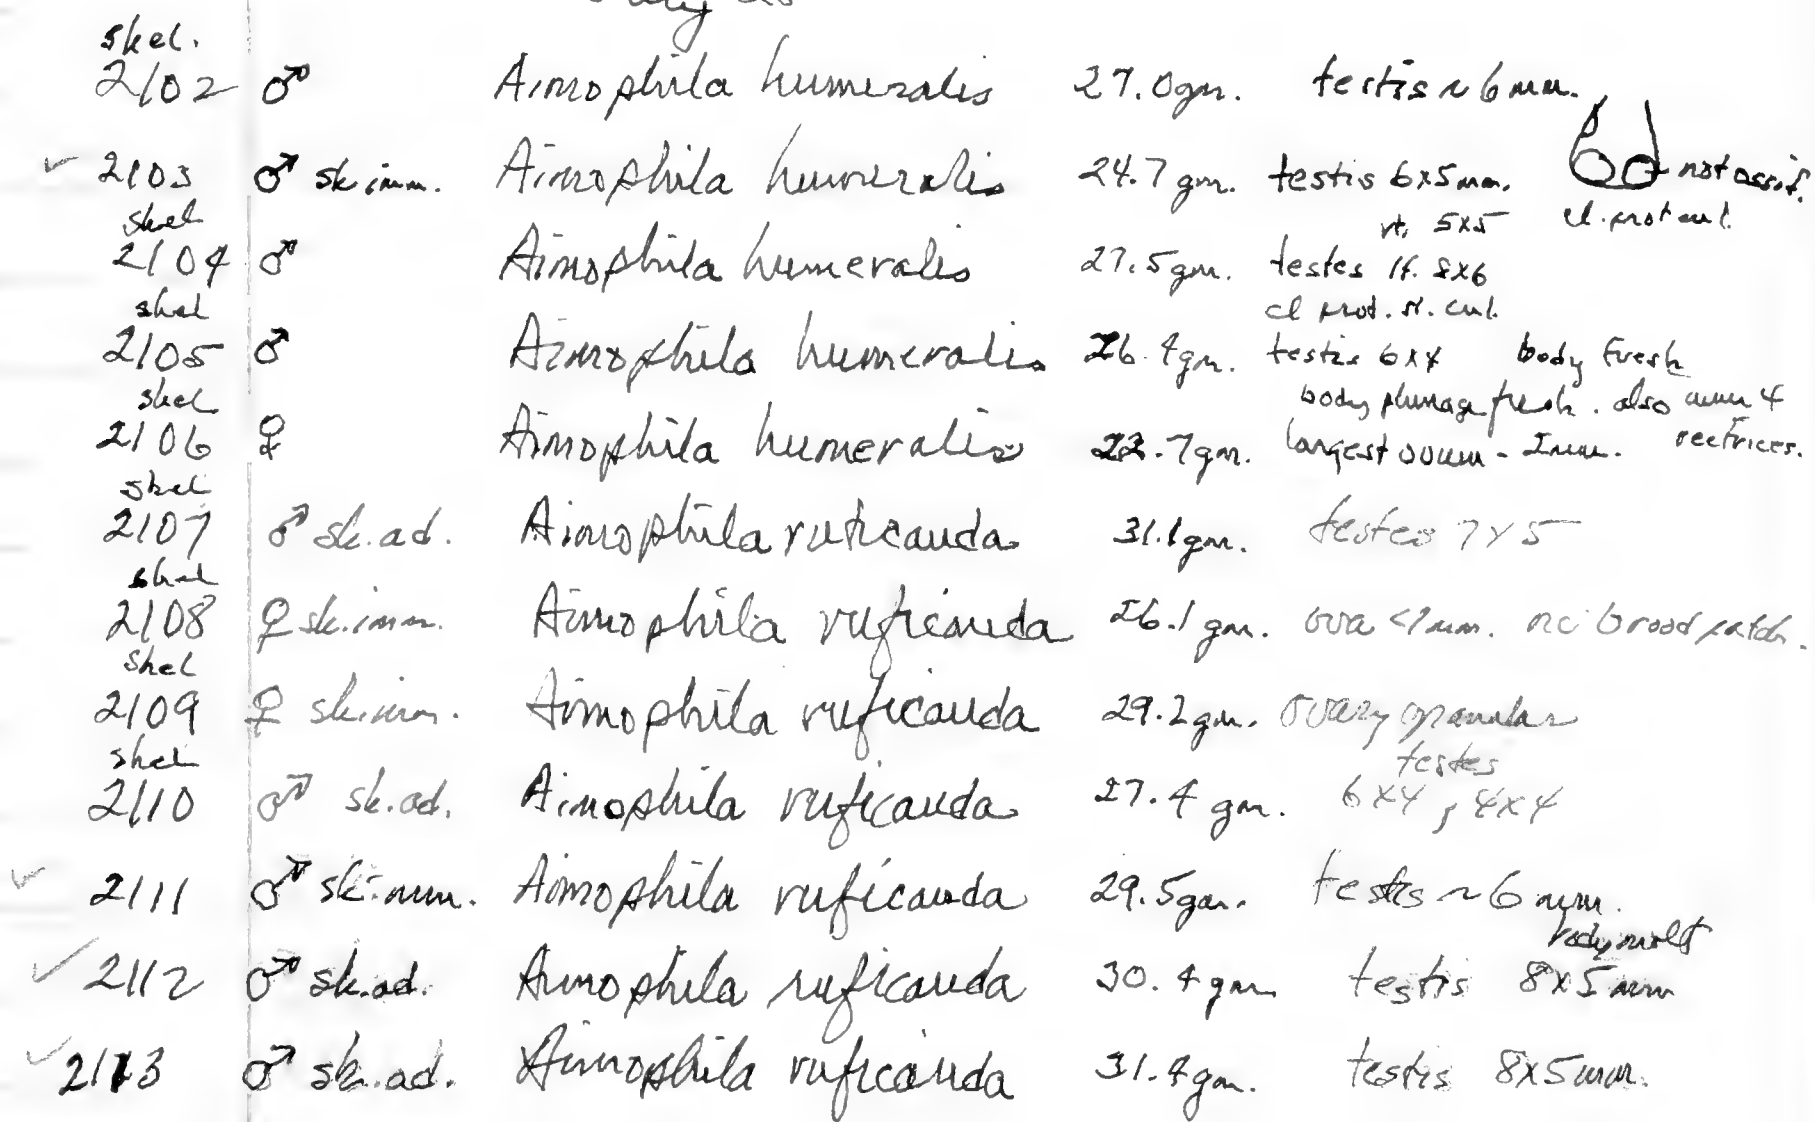 skel.
2102 ♂ Aimophila humeralis 27.0gm. testis ~ 6mm.
✓ 2103 ♂ sk imm. Aimophila humeralis 24.7 gm. testis 6x5mm. not ossif.
skel rt. 5x5 cl. prot
2104 ♂ Aimophila humeralis 27.5gm. testes lf. 8x6
skel cl prot.
2105 ♂ Aimophila humeralis 26.4gm. testis 6x4 body Fresh
skel body plumage fresh. also 4
2106 ♀ Aimophila humeralis 22.7gm. largest ovum - 1mm. rectrices.
skel
2107 ♂ sk.ad. Aimophila ruficauda 31.1gm. testes 7x5
skel
2108 ♀ sk.imm. Aimophila ruficauda 26.1 gm. ova <1mm. no brood patch.
skel
2109 ♀ sk.imm. Aimophila ruficauda 29.2gm. ovary granular
skel testes
2110 ♂ sk.ad. Aimophila ruficauda 27.4 gm. 6x4, 4x4
✓ 2111 ♂ sk.imm. Aimophila ruficauda 29.5gm. testis ~6 mm.
body molt
✓ 2112 ♂ sk.ad. Aimophila ruficauda 30.4gm testis 8x5mm
✓ 2113 ♂ sk.ad. Aimophila ruficauda 31.4gm. testis 8x5mm.